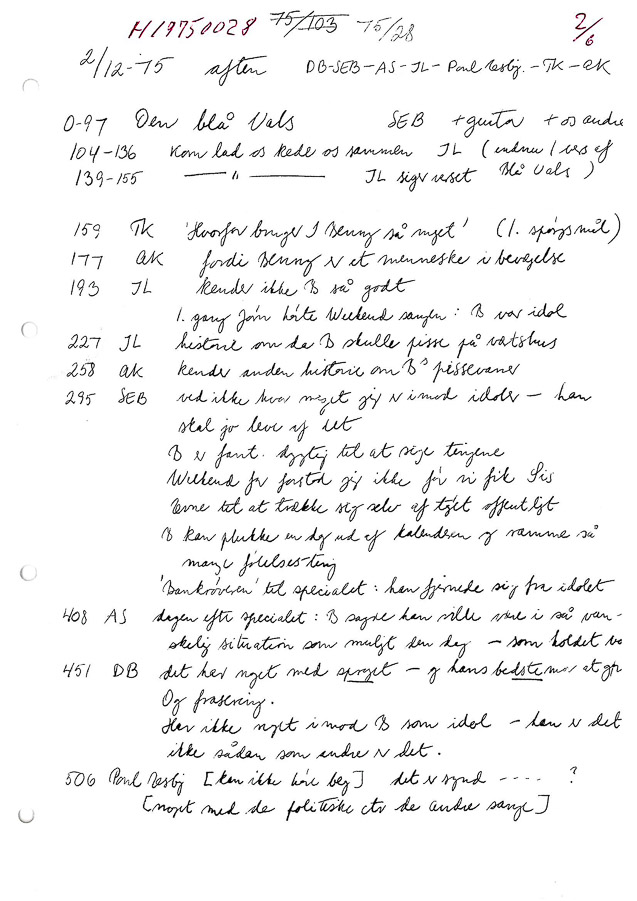 H19750028 75/103 75/28 2/6
2/12-75 aften DB-SEB-AS-JL-Poul Næsbj.-TK-AK
0-97 Den blå Vals SEB + guitar + os andre
104-136 Kom lad os kede os sammen JL (endnu 1 vers af
139-155 — " — JL siger verset Blå Vals)
159 TK 'Hvorfor bruger I Benny så meget' (1. spørgsmål)
177 AK fordi Benny er et menneske i bevægelse
193 JL kender ikke B så godt
1. gang Jørn hørte Weekend sangen : B var idol
227 JL historie om da B skulle pisse på værtshus
258 AK kender anden historie om B's pissevaner
295 SEB ved ikke hvor meget jeg er imod idoler - han
skal jo leve af det
B er fant. dygtig til at sige tingene
Weekend før forstod jeg ikke før vi fik Sis
Ævne til at trække sig selv af tøjet offentligt
B kan plukke en dag ud af kalenderen og ramme så
mange følelses-ting
'Bankrøveren' til specialet : han fjernede sig fra idolet
408 AS dagen efter specialet : B sagde han ville være i så van-
skelig situation som muligt den dag - som holdet va
451 DB det har noget med sproget - og hans bedstemor at gør
Og frasering.
Har ikke noget imod B som idol - han er det
ikke sådan som andre er det.
506 Poul Næsbj [kan ikke høre beg] det er synd ---- ?
[noget med de politiske ctr de andre sange]